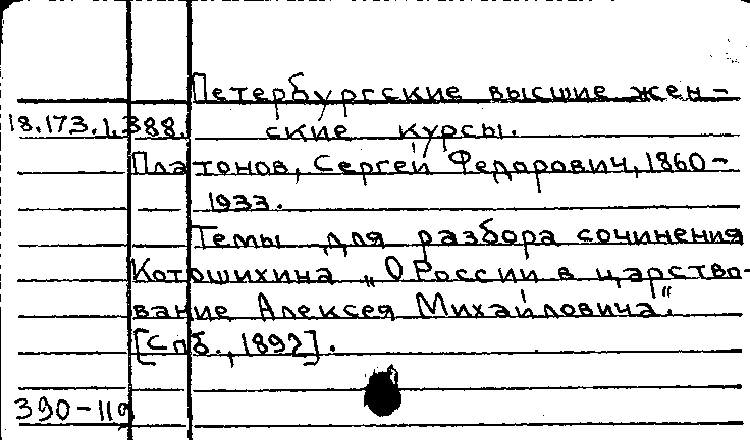 Петербургские высшие жен-
18.173.1.388. ские курсы.
Платонов, Сергей Федорович, 1860-
1933.
Темы для разбора сочинения
Котошихина „О России в царство-
вание Алексея Михайловича".
[Спб., 1892].
390-119